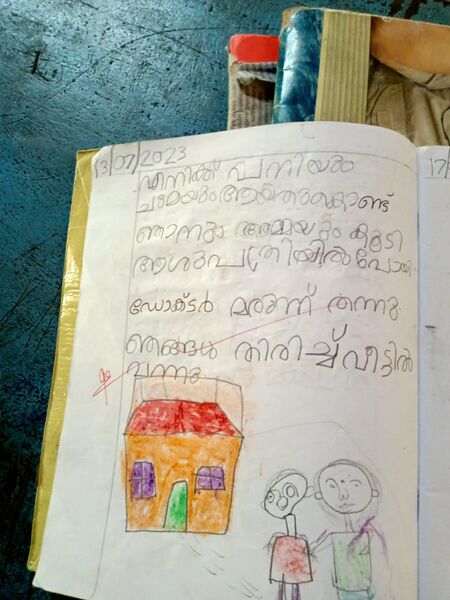 13/07/2023
17/
എനിക്ക് പനിയും
ചുമയും ആയതുകൊണ്ട്
ഞാനും അമ്മയും കൂടി
ആശുപത്രിയിൽ പോയി.
ഡോക്ടർ മരുന്ന് തന്നു.
ഞങ്ങൾ തിരിച്ച് വീട്ടിൽ
വന്നു